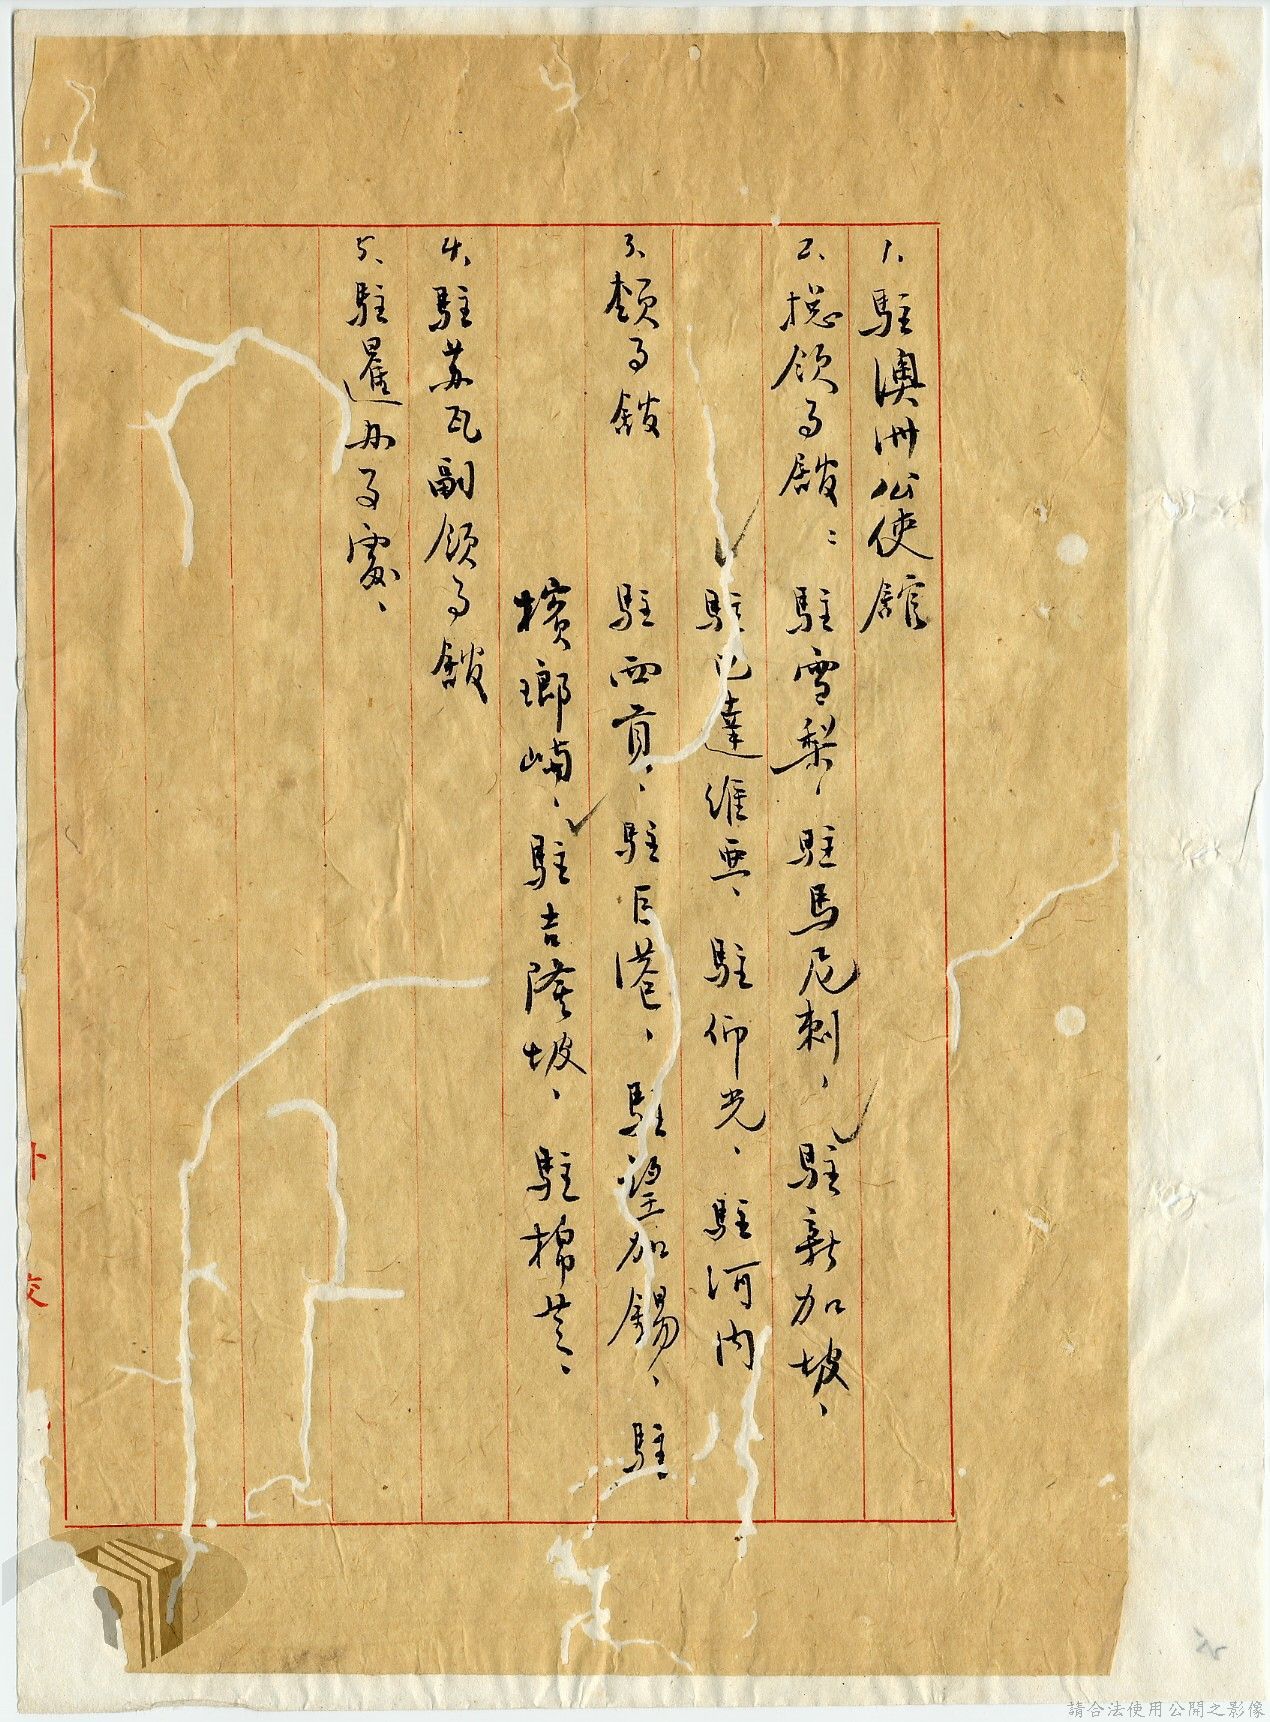 1、駐澳洲公使館
2、總領事館：駐雪梨、駐馬尼剌、駐新加坡、
駐巴達維亞、駐仰光、駐河內
3、領事館 駐西貢、駐巨港、駐望加錫、駐
檳瑯嶼、駐吉隆坡、駐棉蘭、
4、駐蘇瓦副領事館
5、駐暹辦事處、
外
交
請合法使用公開之影像